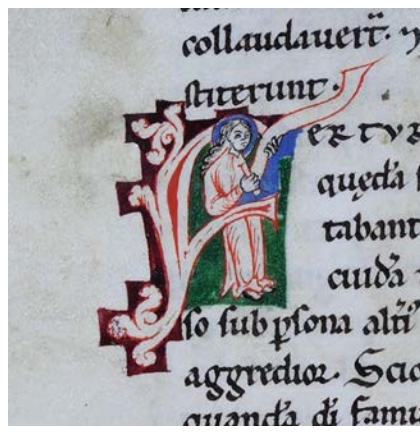 collaudavert̄. ⁊
stiterunt.
FERTVR
quęda͞
tabant
cuida͞
so sub ꝑsona alt͞i
aggredior. Scio
quanda͞ d͞i famu